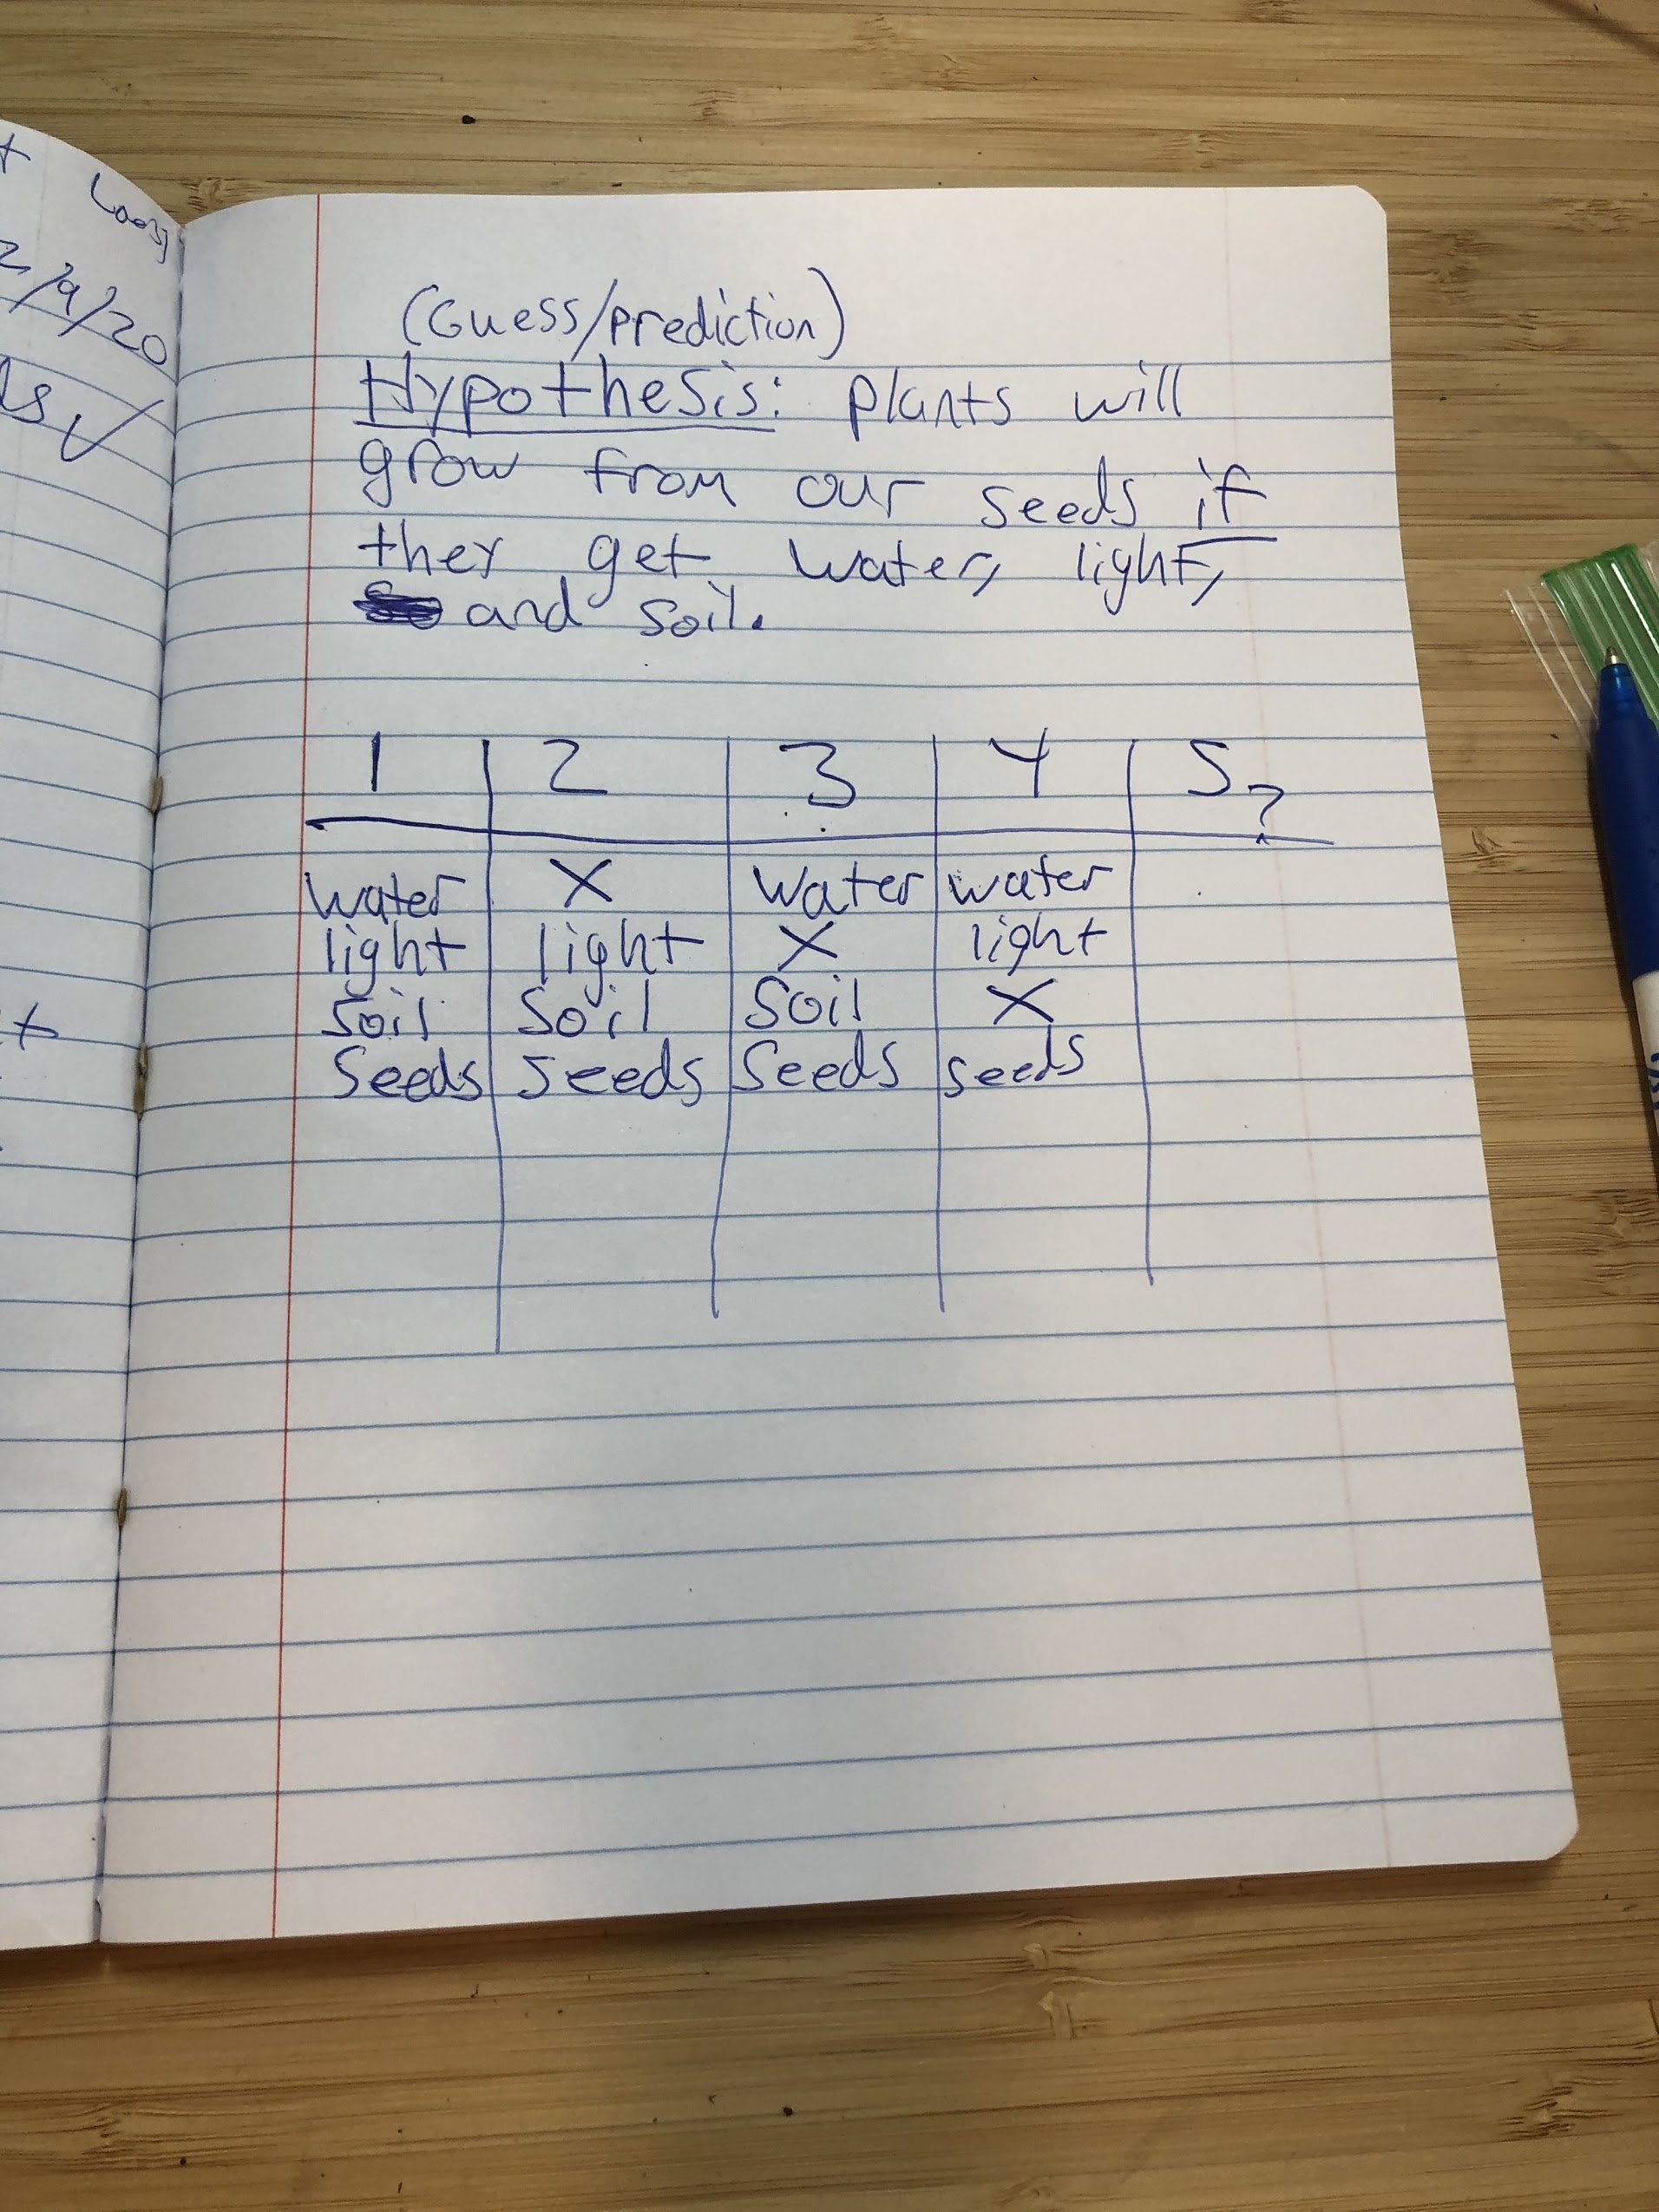 2/9/20
(Guess/prediction)
Hypothesis: plants will
grow from our seeds if
they get water, light,
and soil.
1 2 3 4 5?
water X water water
light light X light
soil soil soil X
seeds seeds seeds seeds